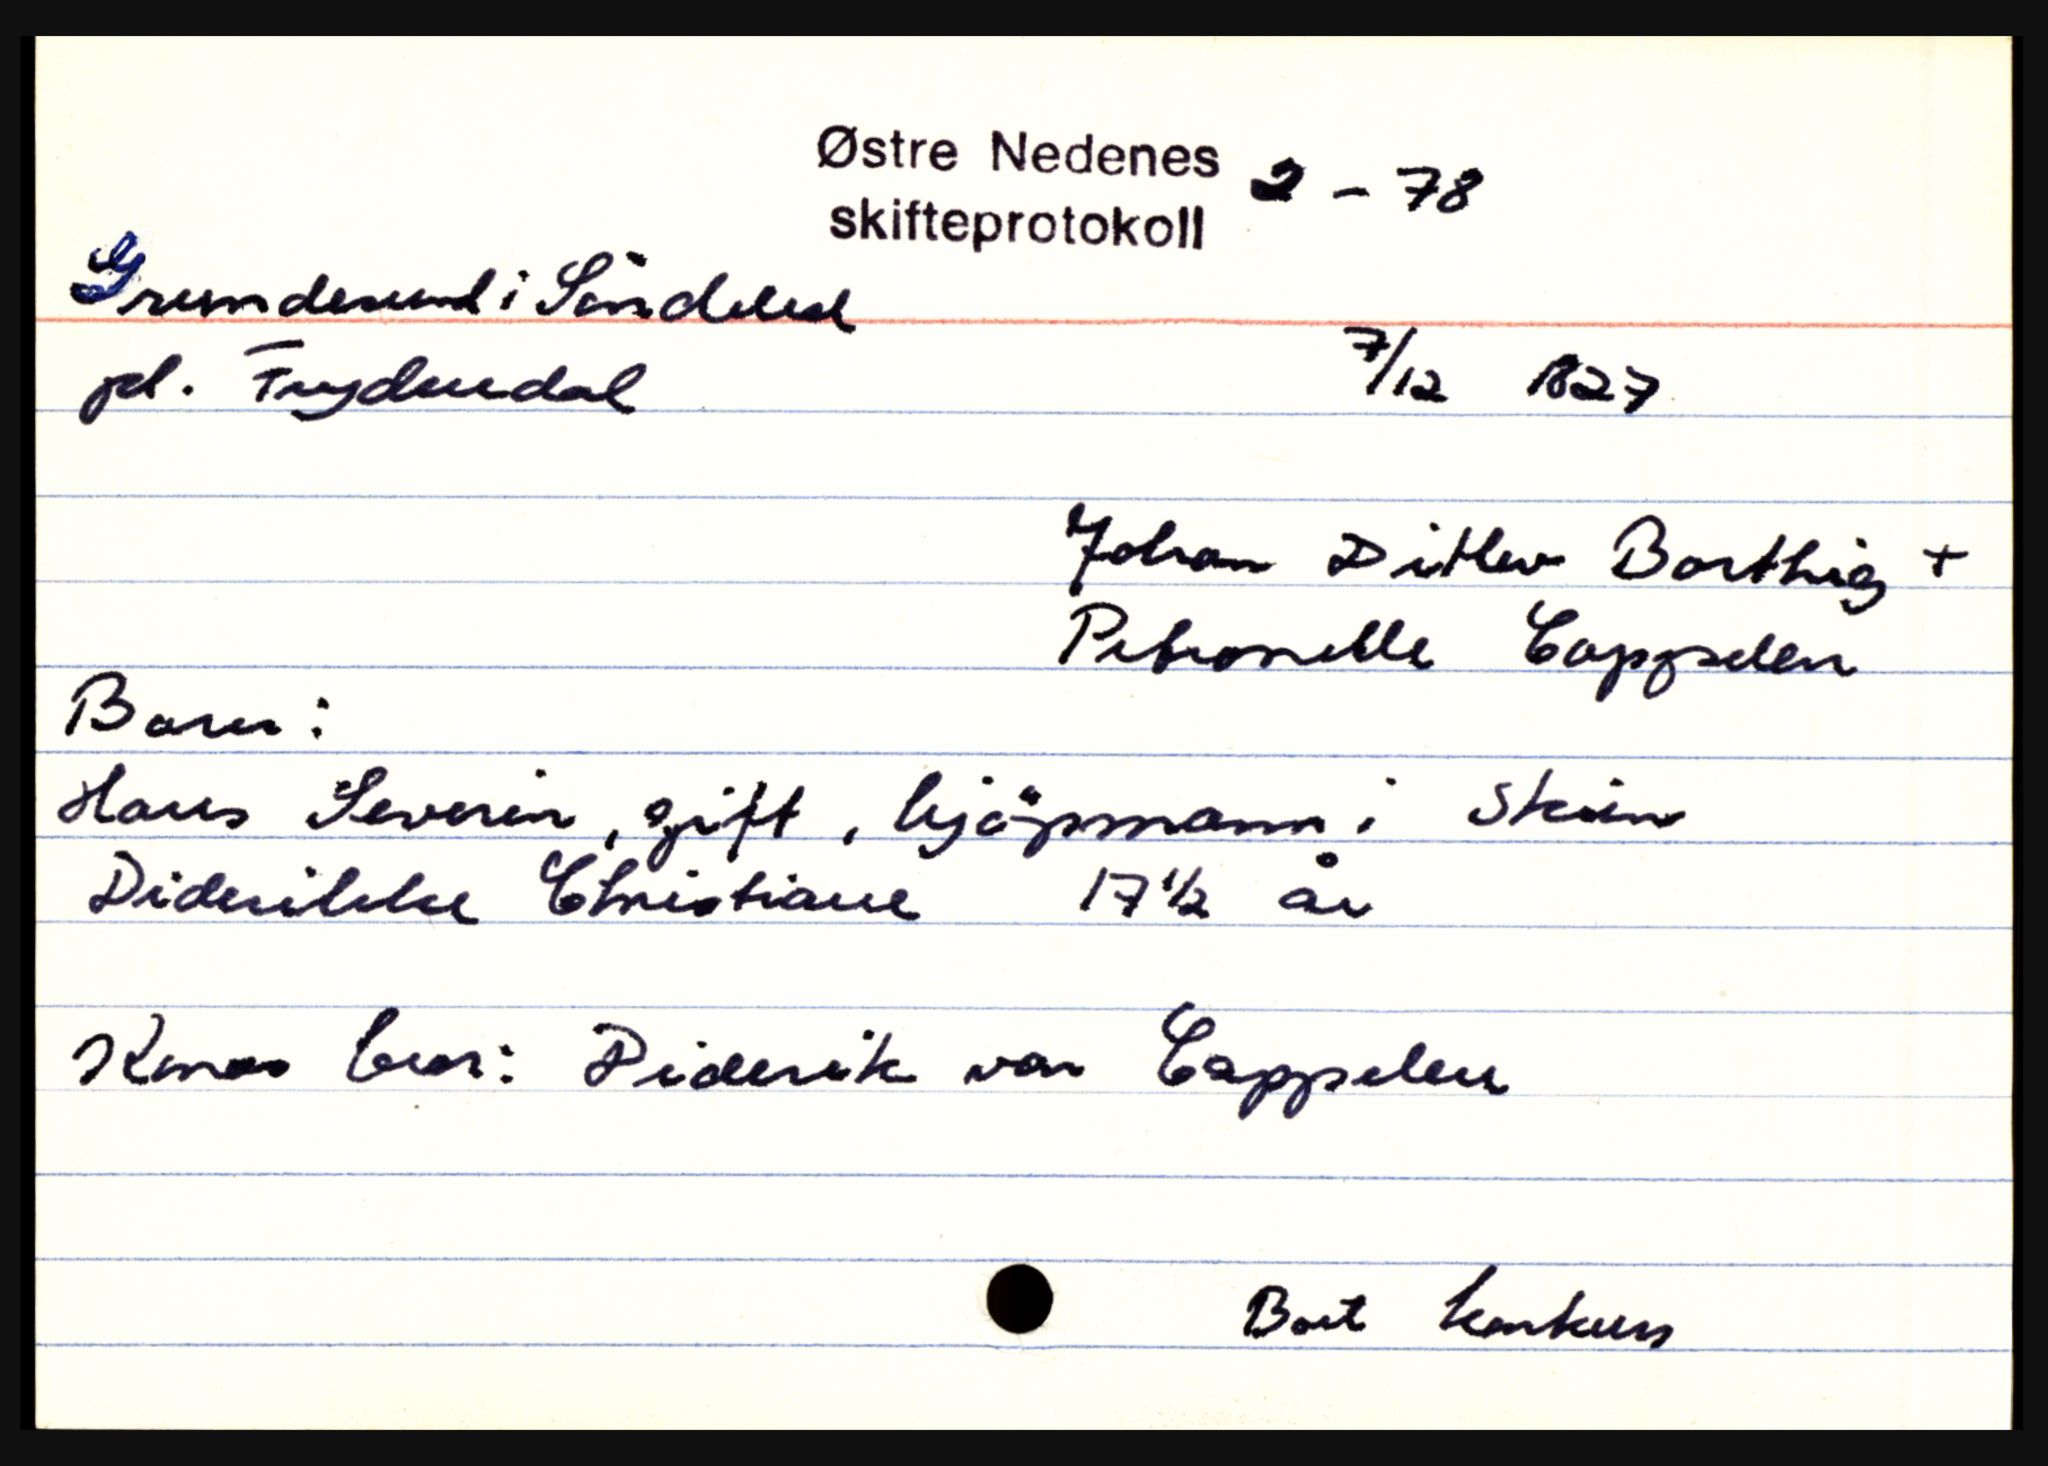 Østre Nedenes 2 - 78
skifteprotokoll
Grundesund i Söndeled
pl. Frydendal
7/12 1827
Johan Ditlev Borthig +
Petronelle Cappelen
Barn:
Hans Severin, gift, kjöpmann i Skien
Diderikke Christiane 17 1/2 år
Konas bror: Diderik von Cappelen
Bort konkurs